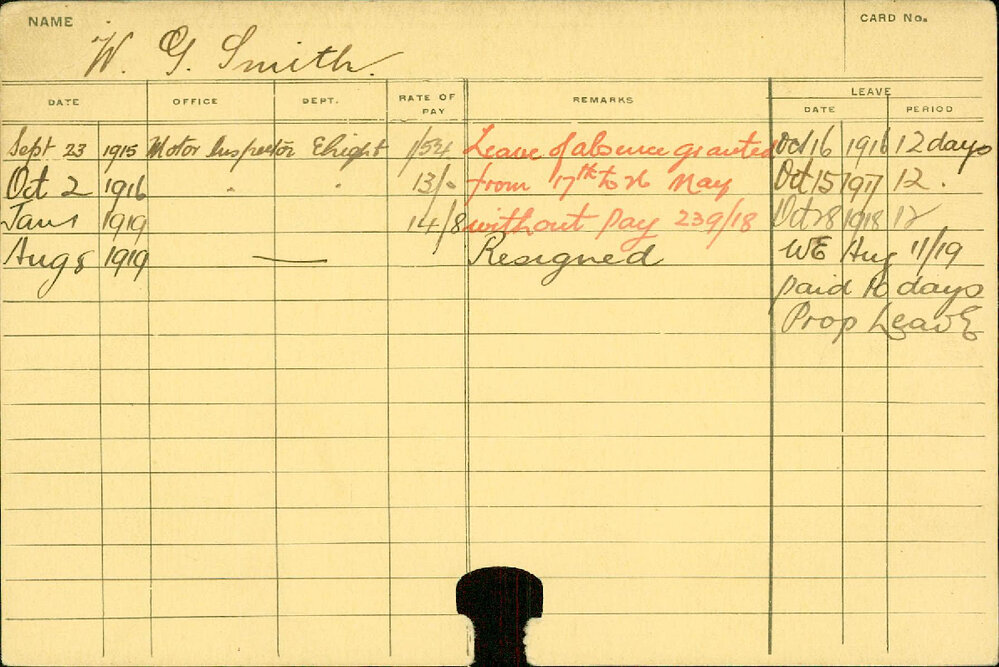 NAME W. G. Smith. CARD No.
DATE OFFICE DEPT. RATE OF PAY REMARKS LEAVE
DATE PERIOD
Sept 23 1915 Motor Inspector Leave of absence granted Oct 16 1916 12 days
Oct 2 1916 " " 13/- from 17th to 26 May Oct 15 1917 12.
Jan 1 1919 14/8 without pay 239/18 Oct 28 1918 12
Aug 8 1919 — Resigned WE Aug 11/19
paid 10 days
Prop Leave